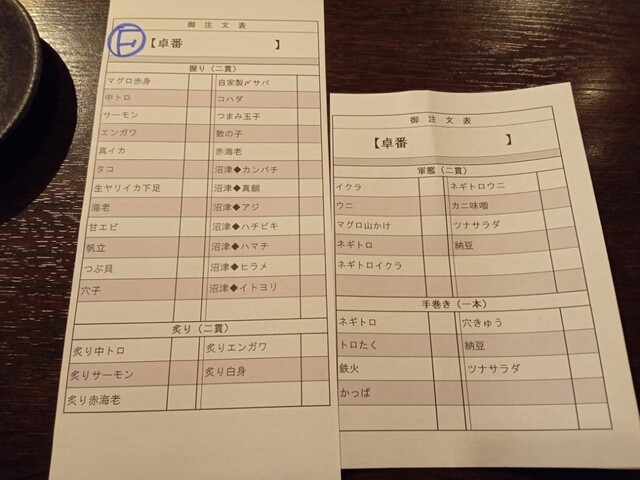 御注文表
E 【卓番 】
握り（二貫）
マグロ赤身 自家製〆サバ
中トロ コハダ
サーモン つまみ玉子
エンガワ 数の子
真イカ 赤海老
タコ 沼津◆カンパチ
生ヤリイカ下足 沼津◆真鯛
海老 沼津◆アジ
甘エビ 沼津◆ハチビキ
帆立 沼津◆ハマチ
つぶ貝 沼津◆ヒラメ
穴子 沼津◆イトヨリ
炙り（二貫）
炙り中トロ 炙りエンガワ
炙りサーモン 炙り白身
炙り赤海老
御注文表
【卓番 】
軍艦（二貫）
イクラ ネギトロウニ
ウニ カニ味噌
マグロ山かけ ツナサラダ
ネギトロ 納豆
ネギトロイクラ
手巻き（一本）
ネギトロ 穴きゅう
トロたく 納豆
鉄火 ツナサラダ
かっぱ